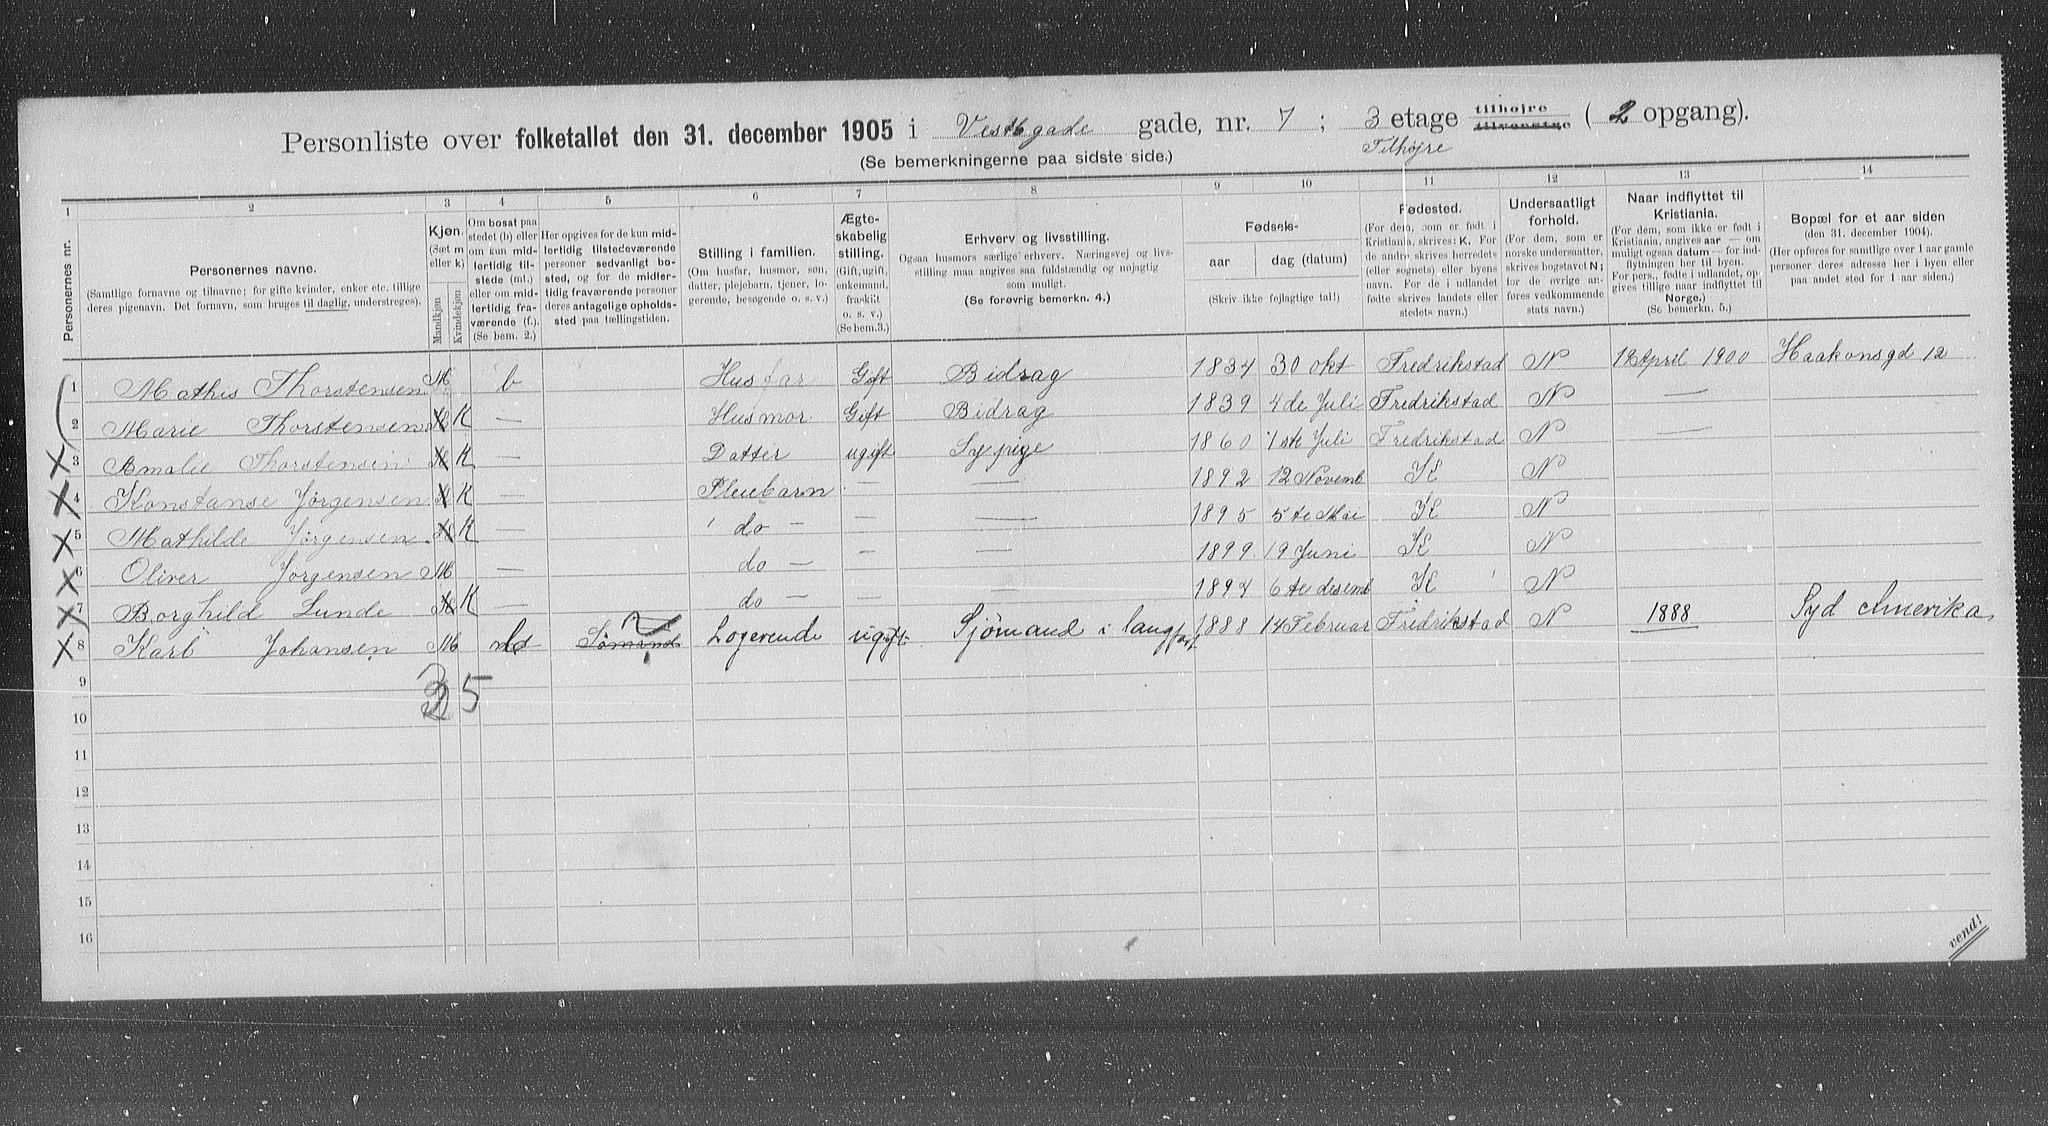 Personliste over folketallet den 31. december 1905 i Vestbgade gade, nr. 7 ; 3 etage tilhøjre tilvenstre ( 2 opgang).
Tilhøjre
(Se bemerkningerne paa sidste side.)
1 2 3 4 5 6 7 8 9 10 11 12 13 14
Personernes nr.
Personernes navne.
(Samtlige fornavne og tilnavne; for gifte kvinder, enker etc. tillige
deres pigenavn. Det fornavn, som bruges til daglig, understreges).
Kjøn.
(Sæt m
eller k)
Mandkjøn
Kvindekjøn
Om bosat paa
stedet (b) eller
om kun mid-
lertidig til-
stede (mt.)
eller om mid-
lertidig fra-
værende (f.)
(Se bem. 2.)
Her opgives for de kun mid-
lertidig tilstedeværende
personer sedvanligt bo-
sted, og for de midler-
tidig fraværende personer
deres antagelige opholds-
sted paa tællingstiden.
Stilling i familien.
(Om husfar, husmor, søn,
datter, plejebarn, tjener, lo-
gerende, besøgende o. s. v.)
Ægte-
skabelig
stilling.
(Gift, ugift,
enkemand,
fraskilt
o. s. v.)
(Se bem.3.)
Erhverv og livsstilling.
Ogsaa husmors særlige erhverv. Næringsvej og livs-
stilling maa angives saa fuldstændig og nøjagtig
som muligt.
(Se forøvrig bemerkn. 4.)
Fødsels-
aar
dag (datum)
(Skriv ikke fejlagtige tal!)
Fødested.
(For dem, som er født i
Kristiania, skrives: K. For
de andre skrives herredets
(eller sognets) eller byens
navn. For de i udlandet
fødte skrives landets eller
stedets navn.)
Undersaatligt
forhold.
(For dem, som er
norske undersaatter,
skrives bogstavet N;
for de øvrige an-
føres vedkommende
stats navn.)
Naar indflyttet til
Kristiania.
(For dem, som ikke er født i
Kristiania, angives aar — om
muligt ogsaa datum — for ind-
flytningen her til byen.
For pers., fødte i udlandet, op-
gives tillige naar indflyttet til
Norge.)
(Se bemerkn. 5.)
Bopæl for et aar siden
(den 31. december 1904).
(Her opføres for samtlige over 1 aar gamle
personer deres adresse her i byen eller
paa andet sted for 1 aar siden.)
1 Mathis Thorstensen M b Husfar Gift Bidrag 1834 30 okt Fredrikstad N 18 April 1900 Haakonsgd 12
2 Marie Thorstensen K — Husmor Gift Bidrag 1839 4 de Juli Fredrikstad N —
3 Amalie Thorstensen K — Datter ugift Sypige 1860 1ste Juli Fredrikstad N —
4 Konstanse Jørgensen K — Pleiebarn — — 1892 12 Novemb K N
5 Mathilde Jørgensen K — do — — — 1895 5 te Mai K N
6 Oliver Jørgensen M — do — — — 1899 19 Juni K N
7 Borghilde Lunde K — do — — — 1897 6 te desemb K N
8 Karl Johansen M Sømand ? Logerende ugift Sjømand i langfart 1888 14 Februar Fredrikstad N 1888 Syd Amerika
9
3 5
10
11
12
13
14
15
16
vend!